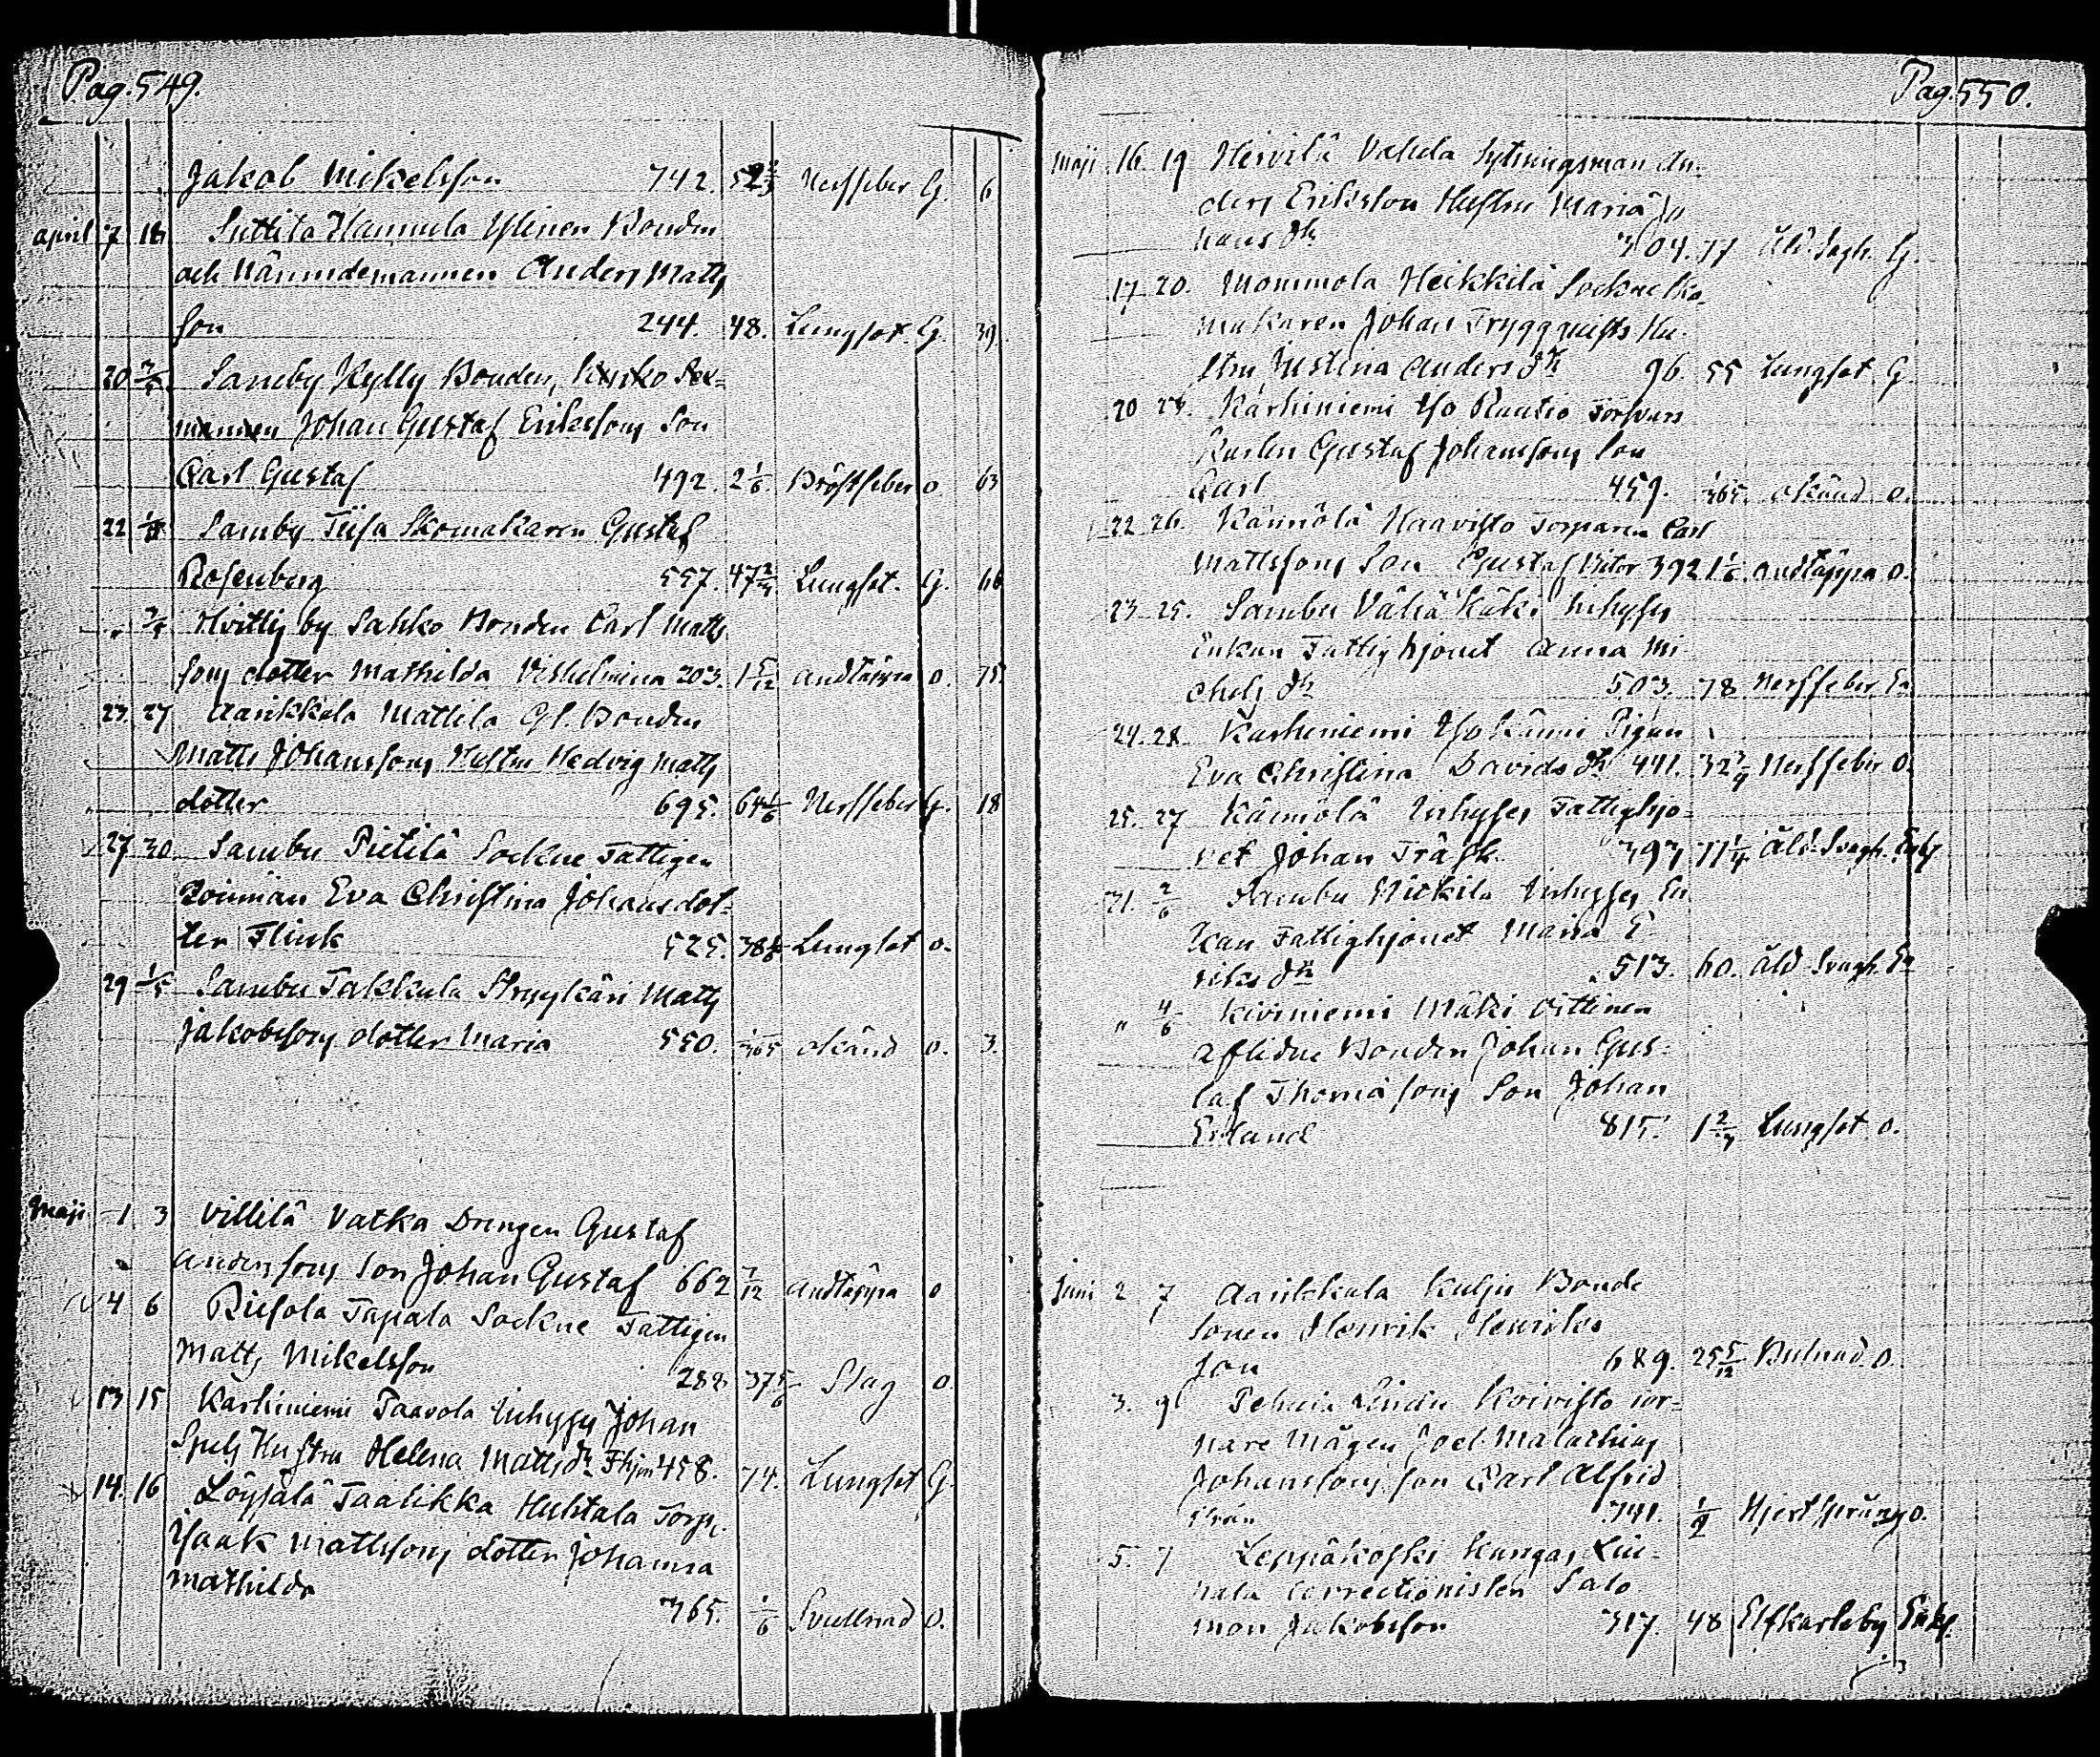 Pag. 549.
Jakob Mikelsson 742. 52 2/3 Nerffeber G. 6
april 7 18 Suttila Hannula Ylinen Bonden
och Nämndemannen Anders Matts
son 244. 48. Lungsot. G. 39
20 2/5 Samby Kylly Bonden, Kyrko Sex-
mannen Johan Gustaf Erikssons Son
Carl Gustaf 492. 2 1/6. Bröstfeber o 63
22 1/5 Samby Tiisa Skomakaren Gustaf
Rosenberg 557. 47 2/3 Lungsot. G. 66
" 2/5 Hvittis by Sahko Bonden Carl Matts
sons dotter Mathilda Vilhelmina 203. 1 5/12 andtäppa o. 75
23. 27 Aarikkala Mattila Gl. Bonden
Matts Johanssons Hustru Hedvig Matts
dotter 695. 64 1/6 Nerffeber G. 18
27 30 Sambu Pietilä Sockne Fattigen
Qvinnan Eva Christina Johansdot-
ter Flink 525. 38 Lungsot o.
29 1/5 Sambu Takkula Matts
Jakobssons dotter Maria 550. 1/365 okänd o. 3.
Maji 1 3 Villilä Vatka Drengen Gustaf
Anderssons Son Johan Gustaf 662 7/12 andtäppa o
4 6 Riesola Tapala Sockne Fattigen
Matts Mikelsson 282 37 5/6 Slag o.
13 15 Karhiniemi Paavola Inhyses Johan
Spels Hustru Helena Mattsdr Fhjon 458. 74. Lungsot G.
14. 16 Löysälä Taalikka Huhtala Torp.
Isaak Mattssons dotter Johanna
Mathilda
365. 1/6 Svullnad o.
Pag. 550.
Maji 16. 19 Heivilä Vahula Sytningsman An-
ders Eriksson Hustru Maria Jo
hans dr 304. 77 Åld. Svgh. G.
17 20. Mommola Heikkilä Sockne Sko
makaren Johan Tryggquists Hu-
stru Justina Anders dr 96. 55 Lungsot G.
20 23. Karhiniemi Iso Rautio Torpars
Karlen Gustaf Johanssons Son
Carl 459. 1/365. okänd o.
22 26. Kännölä Haavisto Torparen Carl
Mattssons Son Gustaf Vitor 392 1 1/6. andtäppa o.
23 25. Sambu Vähä Käki Inhyses
Enkan Fattighjonet Anna Mi-
chels dr 503. 78 Nerffeber En
24. 28. Karhiniemi Iso Kämi Pigan
Eva Christina Davids dr 441. 32 3/4 Nerffeber o.
25. 27 Kännölä Inhyses Fattighjo-
net Johan Träsk 393 71 1/4 Åld. Svagh. Enkl
31. 2/6 Sambu Nickila Inhyses En
kan Fattighjonet Maria E
riks dr 513. 60. Åld Svagh. En
" 4/6 Kiviniemi Mäki Ottinen
aflidne Bonden Johan Gus-
taf Thomassons Son Johan
Erland 815. 1 2/3 Lungsot o.
Juni 2 7 Aarikkala Kulju Bonde
sonen Henrik Henriks
son 689. 25 5/12 Bulnad o.
3. 9 Koivisto tor-
pare Mågen Joel Malachias
Johanssons son Carl Alfrid
från 341. 1/2 Hjertsprång o.
5. 7 Leppäkoski Kangas Lin-
nala Correctionisten Salo
mon Jakobsson 317. 48 Elfkarleby Enkl.